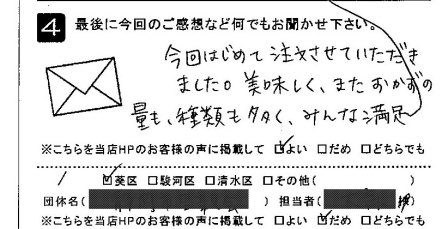 4 最後に今回のご感想など何でもお聞かせ下さい。
今回はじめて注文させていただき
ました。美味しく、またおかずの
量も、種類も多く、みんな満足
※こちらを当店HPのお客様の声に掲載して ☑よい □だめ □どちらでも
☑葵区 □駿河区 □清水区 □その他( )
団体名( ) 担当者( 様)
※こちらを当店HPのお客様の声に掲載して □よい ☑だめ □どちらでも